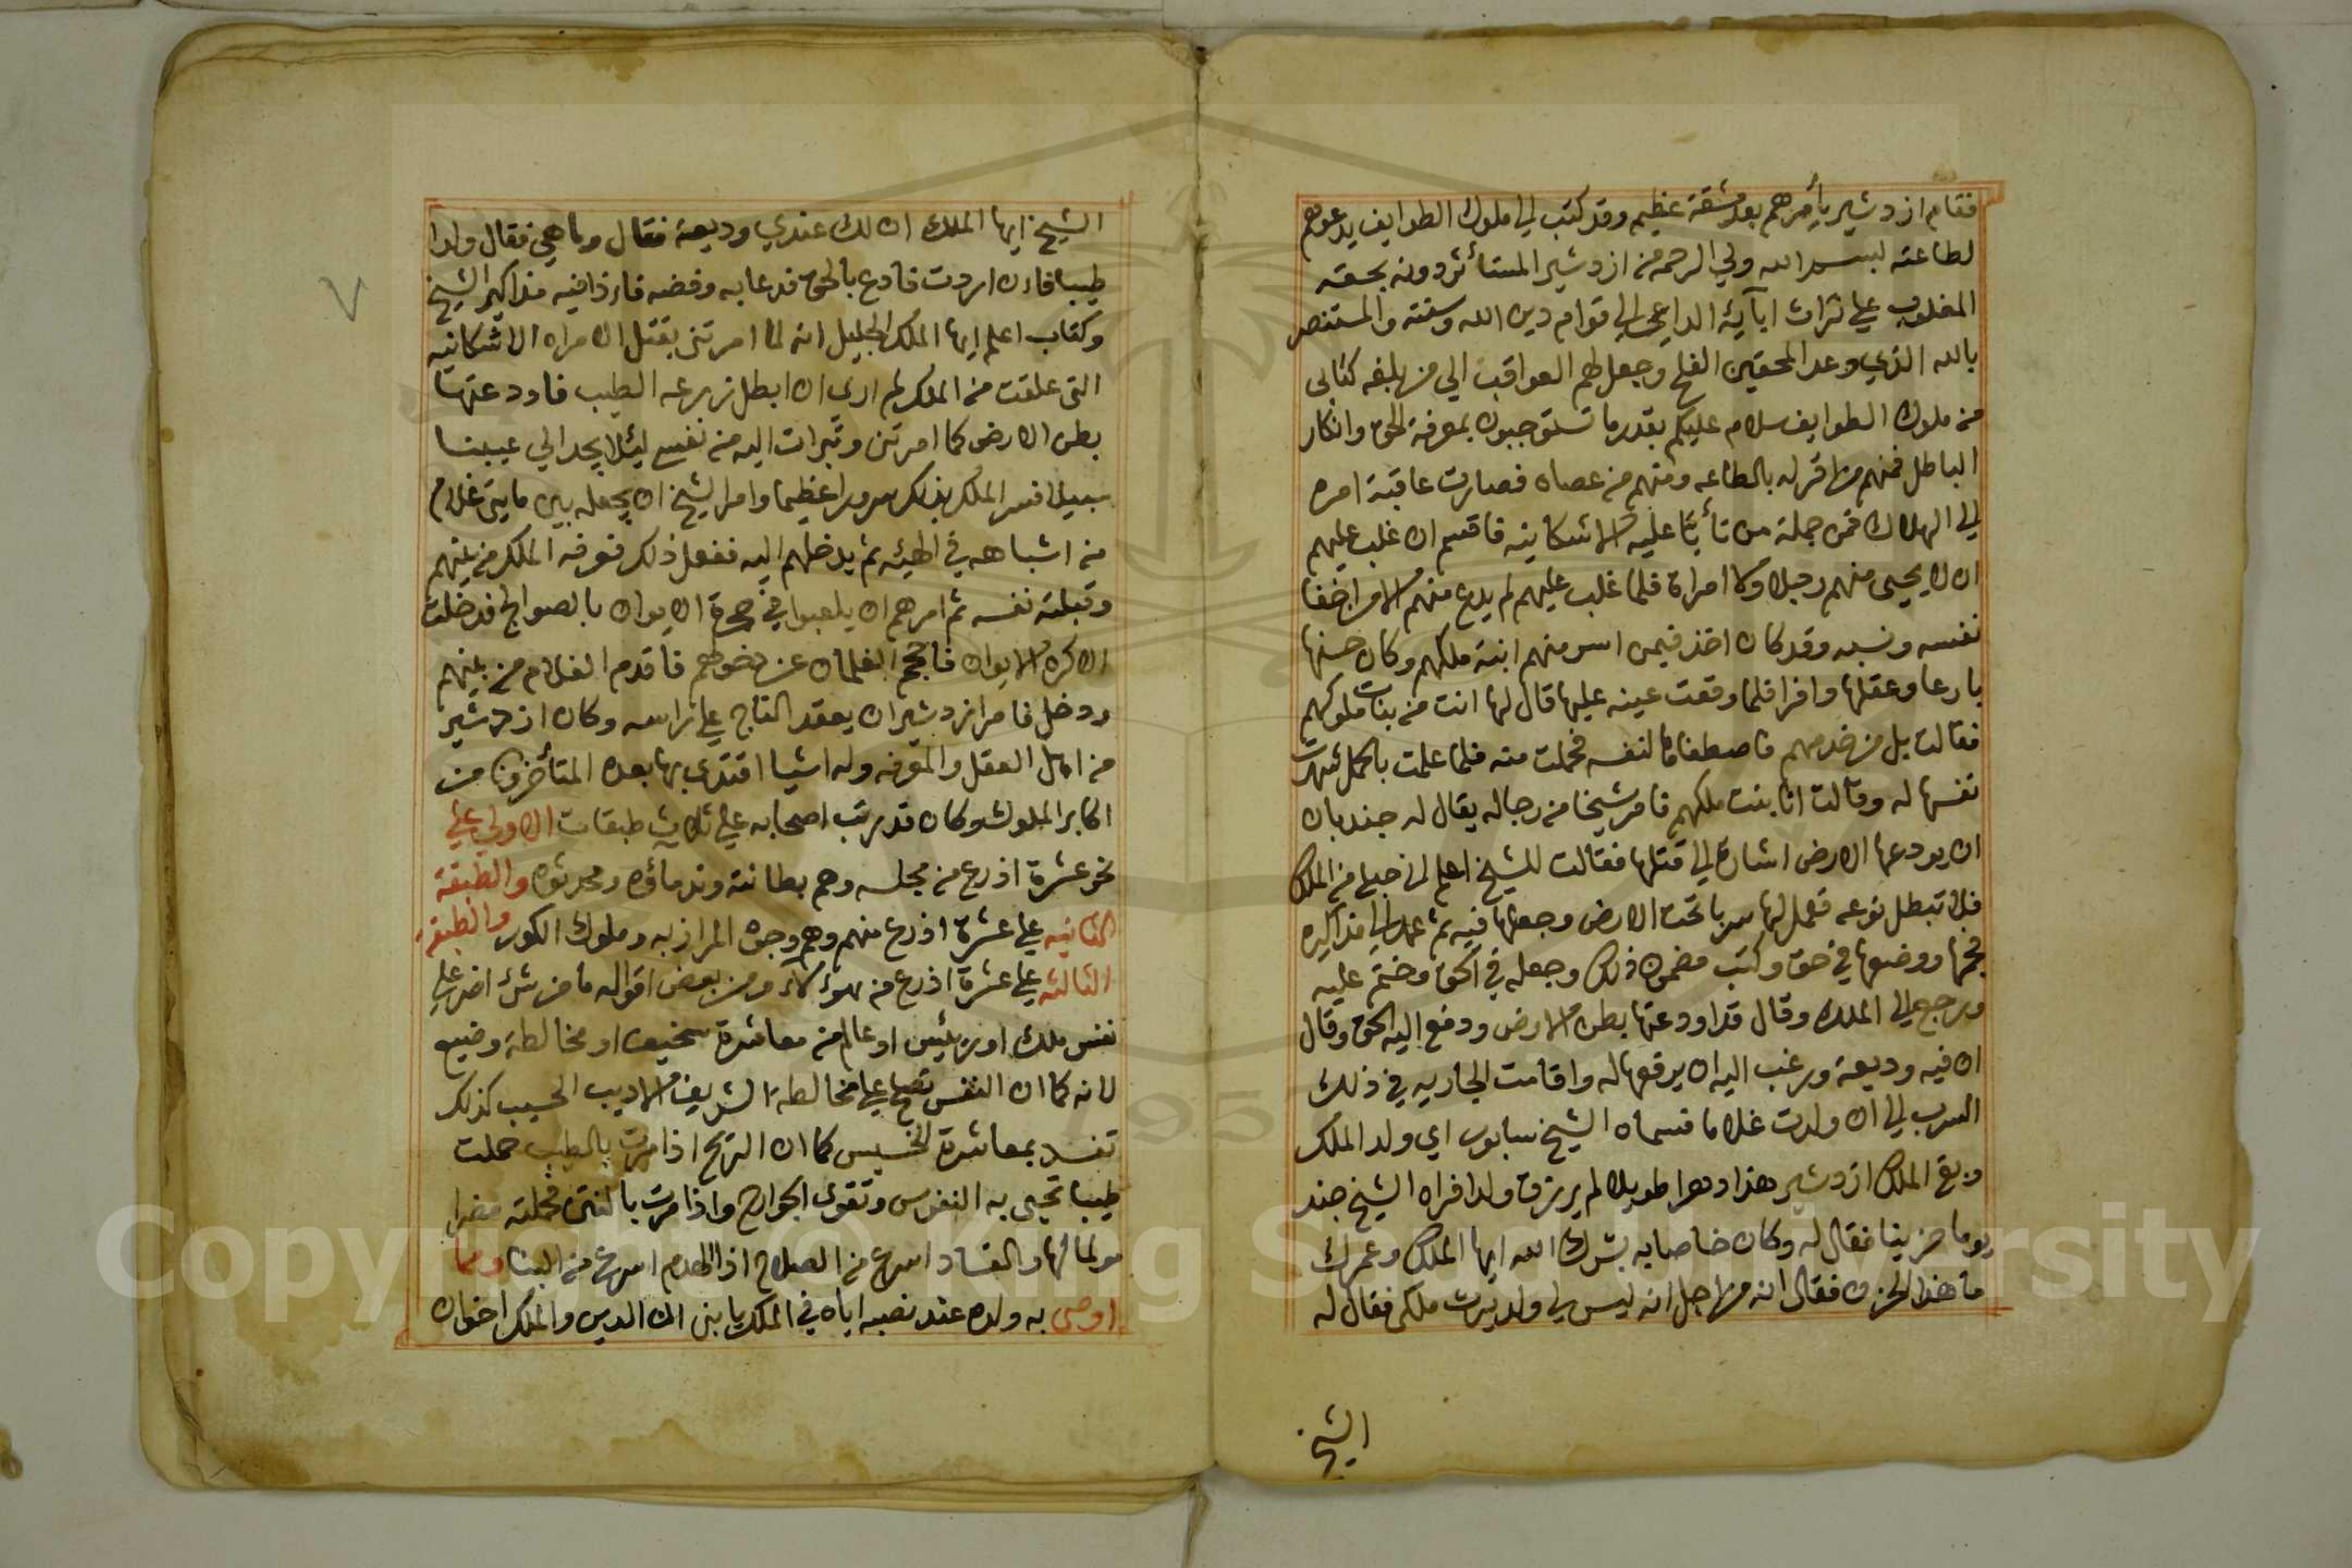 فقام ازدشير بأمرهم بعد مشقة عظيم وقد كتب الي ملوك الطوايف يدعوهم
لطاعته لبسم الله ولي الرحمه من ازدشير المستأثر دونه بحقه
المغلوب علي تراث ابآيه الداعي الي قوام دين الله وسنته والمستنصر
بالله الذي وعد المحقين الفلح وجعل لهم العواقب الي من بلغه كتابى
من ملوك الطوايف سلام عليكم بقدر ما تستوجبون بمعرفة الحق وانكار
الباطل فمنهم من اقر له بالطاعه ومنهم من عصاه فصارت عاقبة امره
الي الهلاك فمن جملة من تأبّا عليه الاشكانيه فاقسم ان غلب عليهم
ان لا يحيى منهم رجلا ولا امراة فلما غلب عليهم لم يدع منهم الا من اخفا
نفسه ونسبه وقد كان اخذ فيمن اسر منهم ابنة ملكهم وكان حسنها
بارعا وعقلها وافرا فلما وقعت عينه عليها قال لها انت من بنات ملوكهم
فقالت بل من خدمهم فاصطفاها لنفسه فحملت منه فلما علمت بالحمل شهرت
نفسها له وقالت انا بنت ملكهم فامر شيخا من رجاله يقال له جندبان
ان يودعها الارض اشارة الي قتلها فقالت للشيخ اعلم اني حبلي من الملك
فلا تبطل زرعه فعمل لها سربا تحت الارض وجعلها فيه ثم عمد الي مذاكيره
فجبها ووضعها في حق وكتب مضمون ذلك وجعله في الحق وختم عليه
ورجع الي الملك وقال قد اودعتها بطن الارض ودفع اليه الحق وقال
ان فيه وديعة ورغب اليه ان يرفعها له واقامت الجاريه في ذلك
السرب الي ان ولدت غلاما فسماه الشيخ سابور اي ولد الملك
وبقي الملك ازدشير هذا دهرا طويلا لم يرزق ولدا فراه الشيخ جند
يوما حزينا فقال له وكان خاصا به بشرك الله ايها الملك وعمرك
ما هذا الحزن فقال انه من اجل انه ليس لي ولد يرث ملكى فقال له
الشيخ
الشيخ ايها الملك ان لك عندي وديعة فقال وما هي فقال ولدا
طيبا فان اردت فادع بالحق فدعا به وفضه فاذا فيه مذاكير الشيخ
وكتاب اعلم ايها الملك الجليل انه لما امرتني بقتل الامراه الاشكانيه
التى علقت من الملك لم ارى ان ابطل زرعه الطيب فاودعتها
بطن الارض كما امرتنى وتبرات اليه من نفسي لئلا يجد الي عيبنا
سبيلا فسر الملك بذلك سرورا عظيما وامر الشيخ ان يجعله بين مايتى غلام
من اشباهه في الهيئه ثم يدخلهم اليه ففعل ذلك فعرفه الملك من بينهم
وقبلته نفسه ثم امرهم ان يلعبوا في حجرة الايوان بالصوالج فدخلت
الاكره الايوان فاحجم الغلمان عن دخولهم فاقدم الغلام من بينهم
ودخل فامر ازدشير ان يعقد التاج علي راسه وكان ازدشير
من اهل العقل والمعرفه وله اشيا اقتدى بها بعده المتأخرون من
اكابر الملوك وكان قد رتب اصحابه علي ثلاث طبقات الاولي علي
نحو عشرة اذرع من مجلسه وهم بطانته وندماؤه ومحدثوه والطبقة
الثانيه علي عشرة اذرع منهم وهم وجوه المرازبه وملوك الكور والطبقة
الثالثه علي عشرة اذرع من هؤلاء ومن بعض اقواله ما من شئ اضر علي
نفس ملك او رئيس او عالم من معاشرة سخيف او مخالطة وضيع
لانه كما ان النفس تصلح علي مخالطة الشريف الاديب الحسيب كذلك
تفسد بمعاشرة الخسيس كما ان الريح اذا مرت بالطيب حملت
طيبا تحيى به النفوس وتقوى الجوارح واذا مرت بالنتن فحملته مضرا
والفساد اسرع من الصلاح اذ الهدم اسرع من البنا ومما
اوصى به ولده عند نصبه اياه في الملك يا بنى ان الدين والملك اخوان